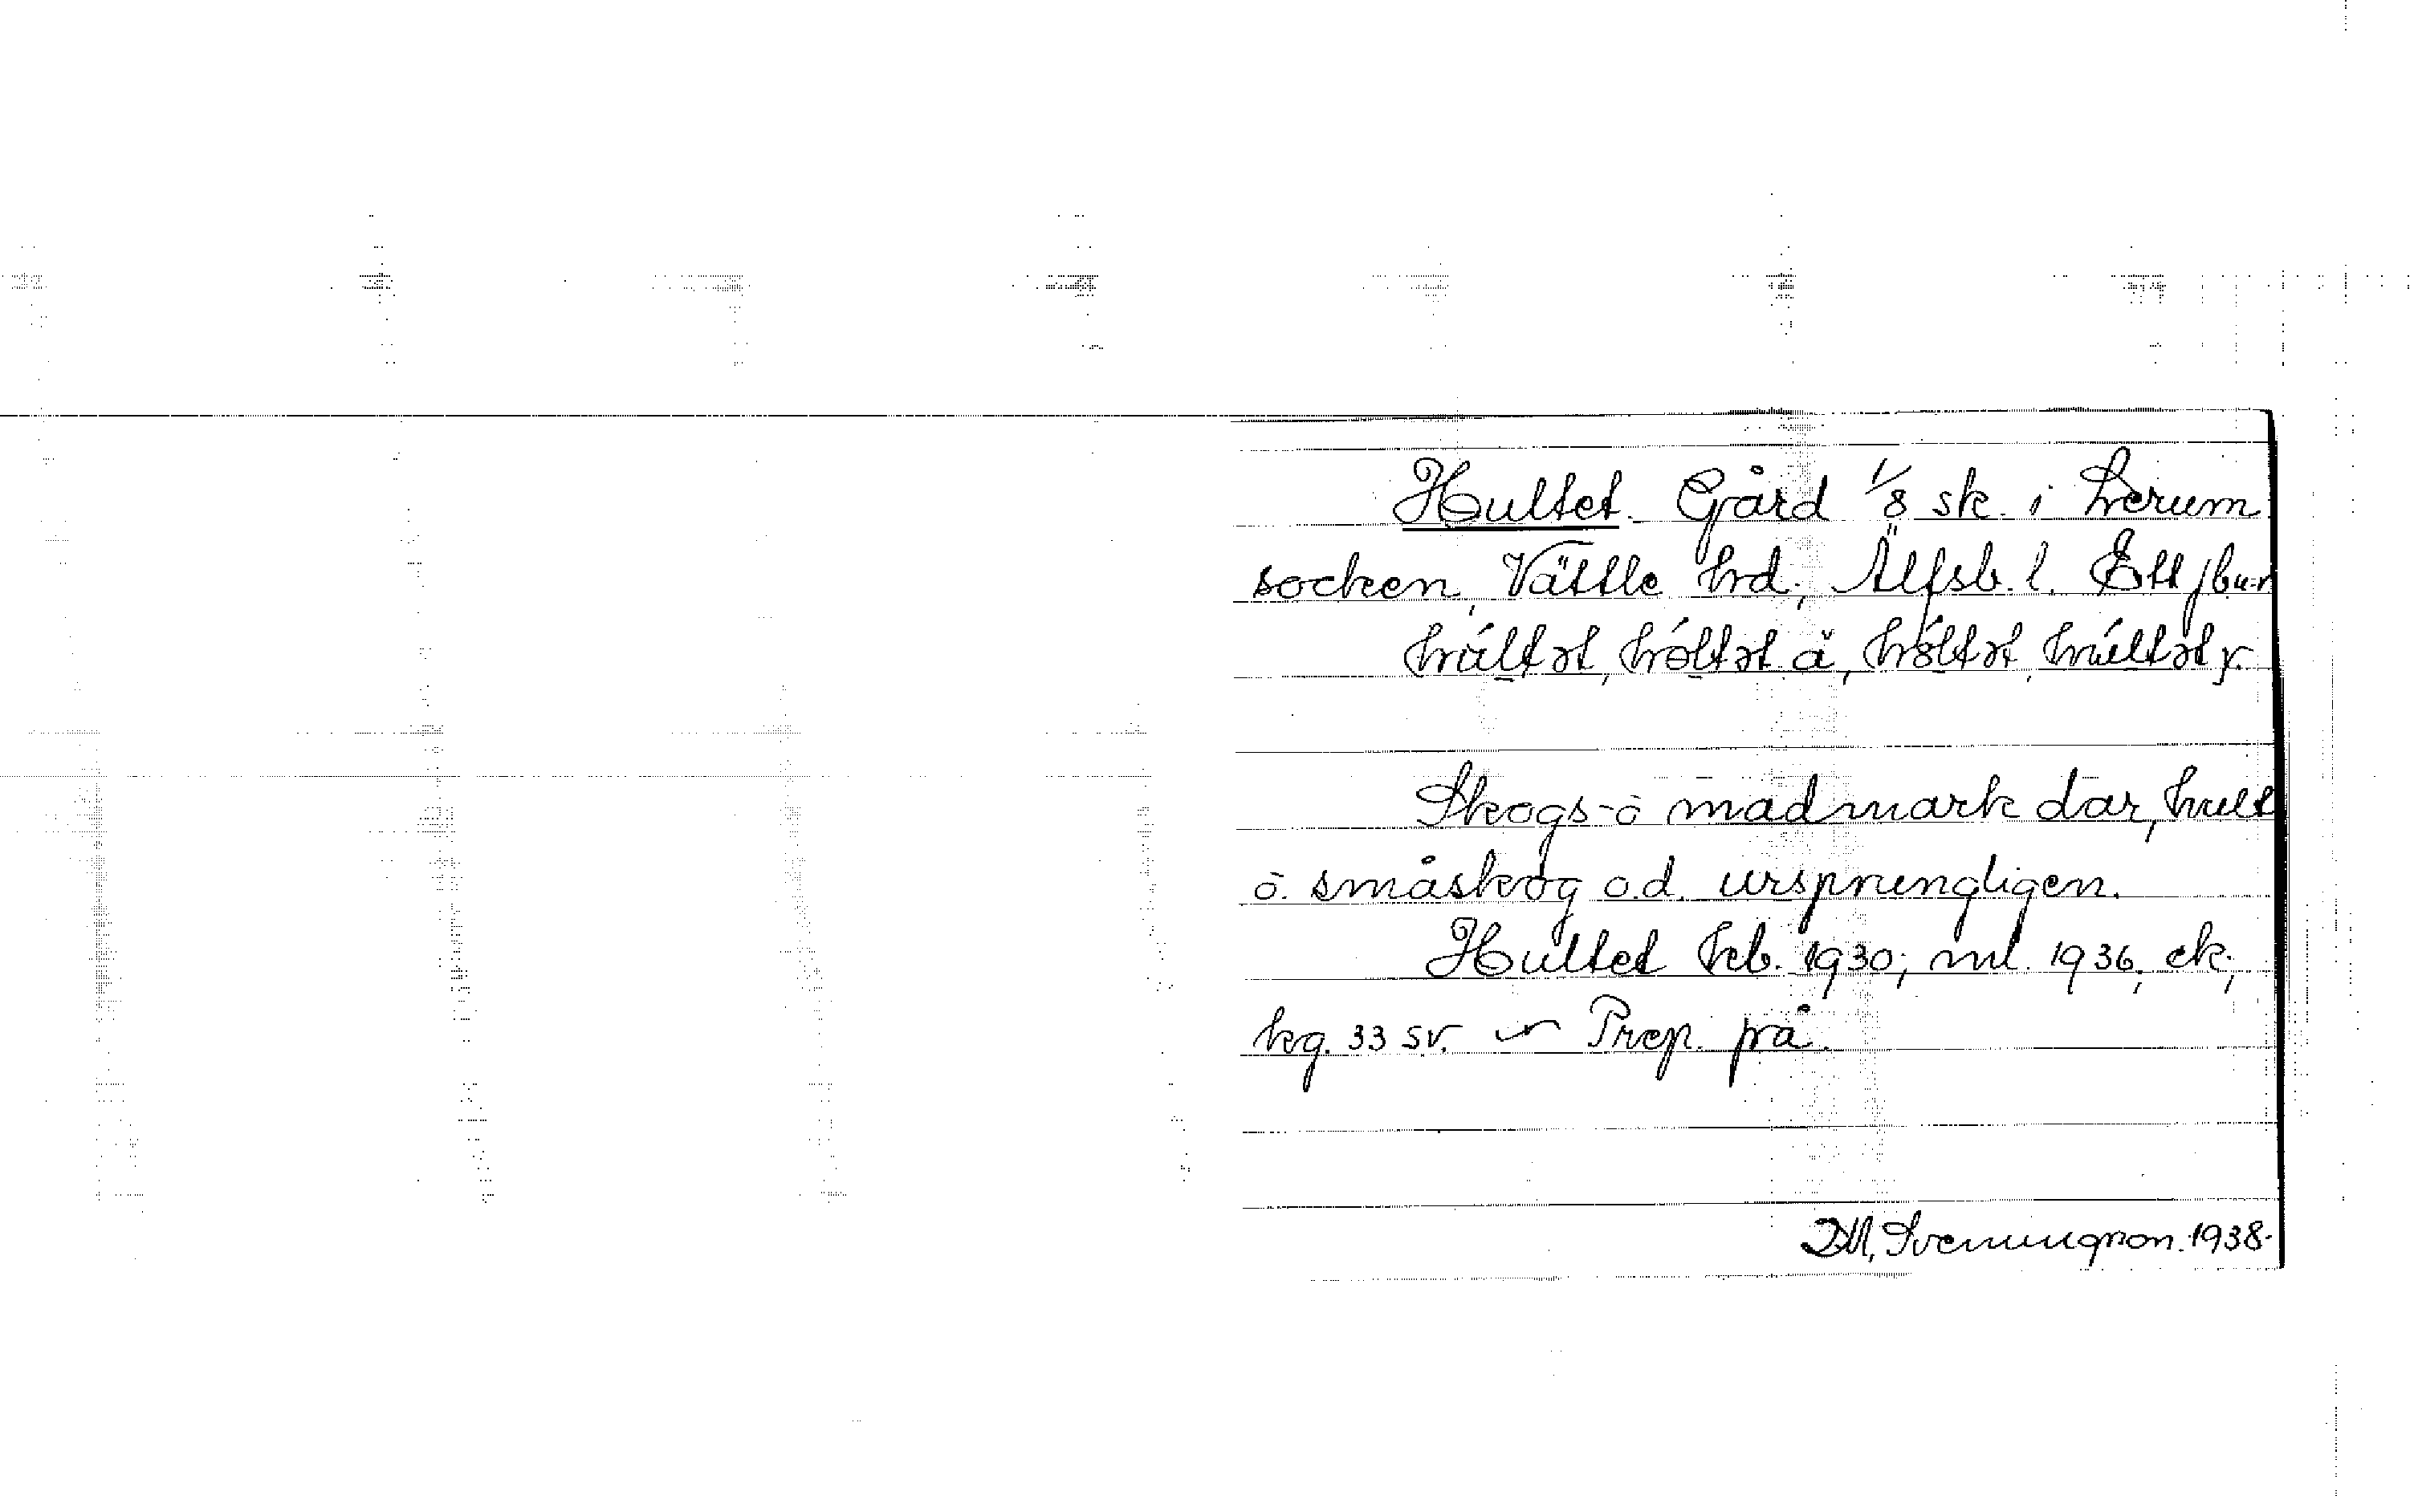 Hultet. Gård 1/8 sk. i Lerum
socken, Vättle hrd, Älfsb. l. Ett
húltət, hóltət ä,
Skogs- o madmark där, hult
o. småskog o.d. ursprungligen.
Hultet 1930; ml. 1936, ek;
kg. 33 sv. Prep. på.
Sveningson. 1938.